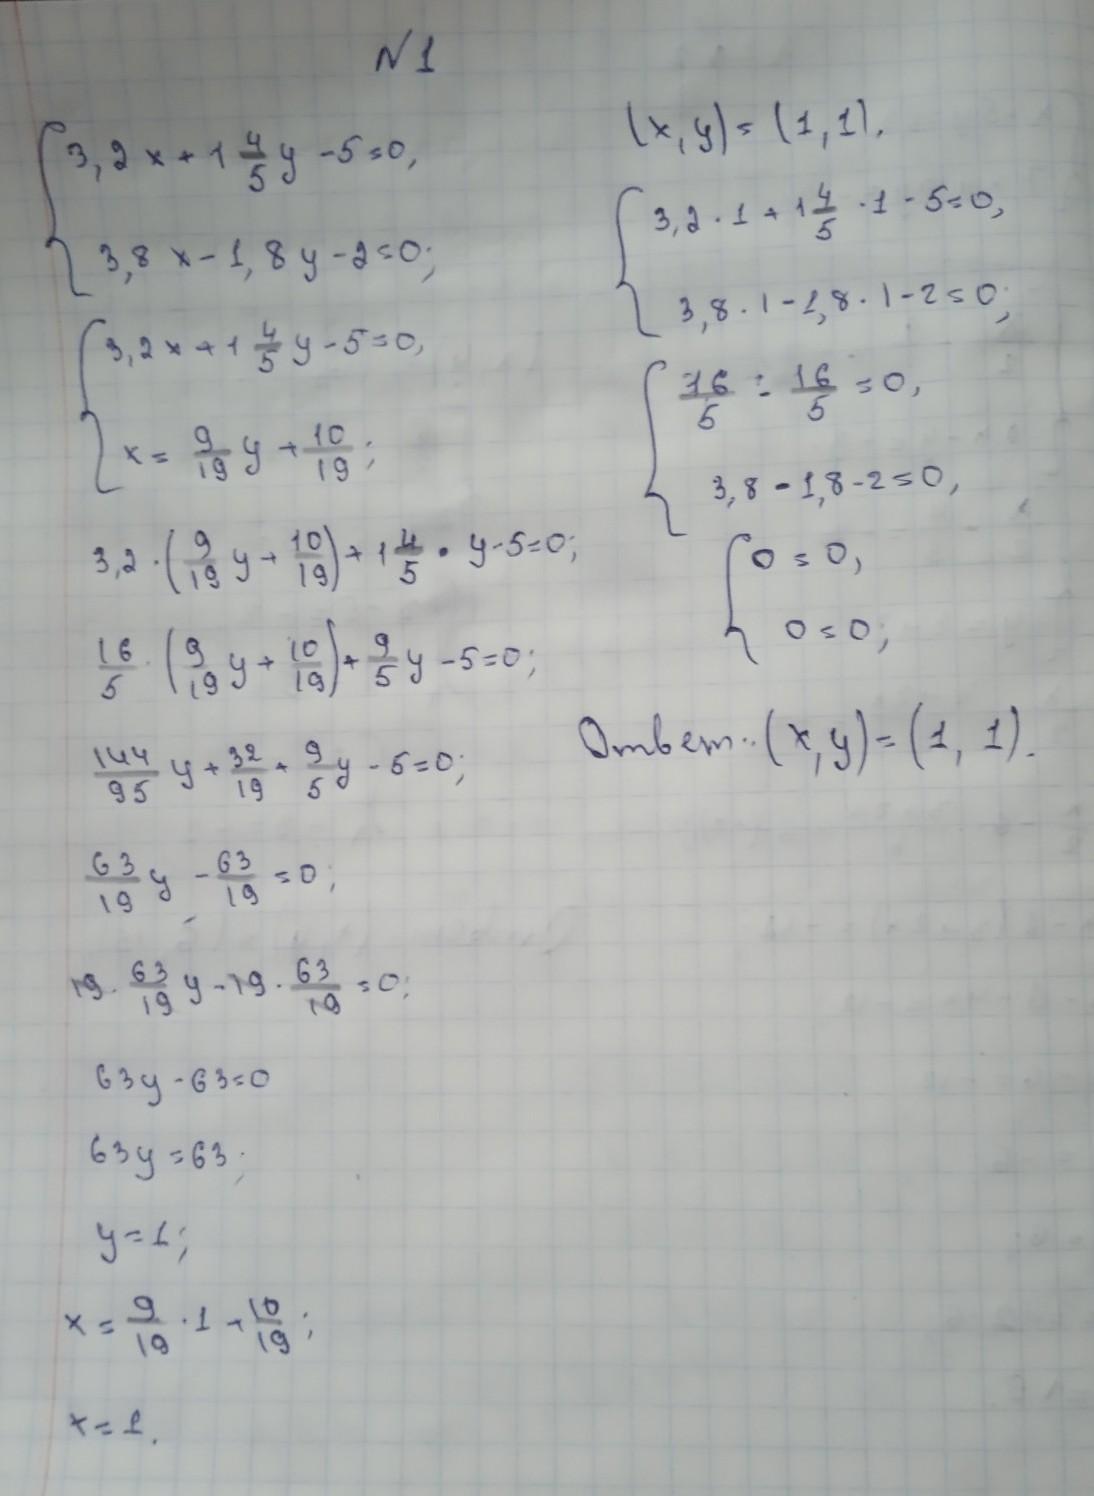 N1
{3,2x + 1 4/5 y - 5 = 0,
3,8x - 1,8y - 2 = 0;
{3,2x + 1 4/5 y - 5 = 0,
x = 9/19 y + 10/19;
3,2 · (9/19 y + 10/19) + 1 4/5 · y - 5 = 0;
16/5 · (9/19 y + 10/19) + 9/5 y - 5 = 0;
144/95 y + 32/19 + 9/5 y - 5 = 0;
63/19 y - 63/19 = 0;
19 · 63/19 y - 19 · 63/19 = 0;
63y - 63 = 0
63y = 63;
y = 1;
x = 9/19 · 1 + 10/19;
x = 1.
(x, y) = (1, 1).
{3,2 · 1 + 1 4/5 · 1 - 5 = 0,
3,8 · 1 - 1,8 · 1 - 2 = 0;
{16/5 - 16/5 = 0,
3,8 - 1,8 - 2 = 0,
{0 = 0,
0 = 0;
Ответ: (x, y) = (1, 1).